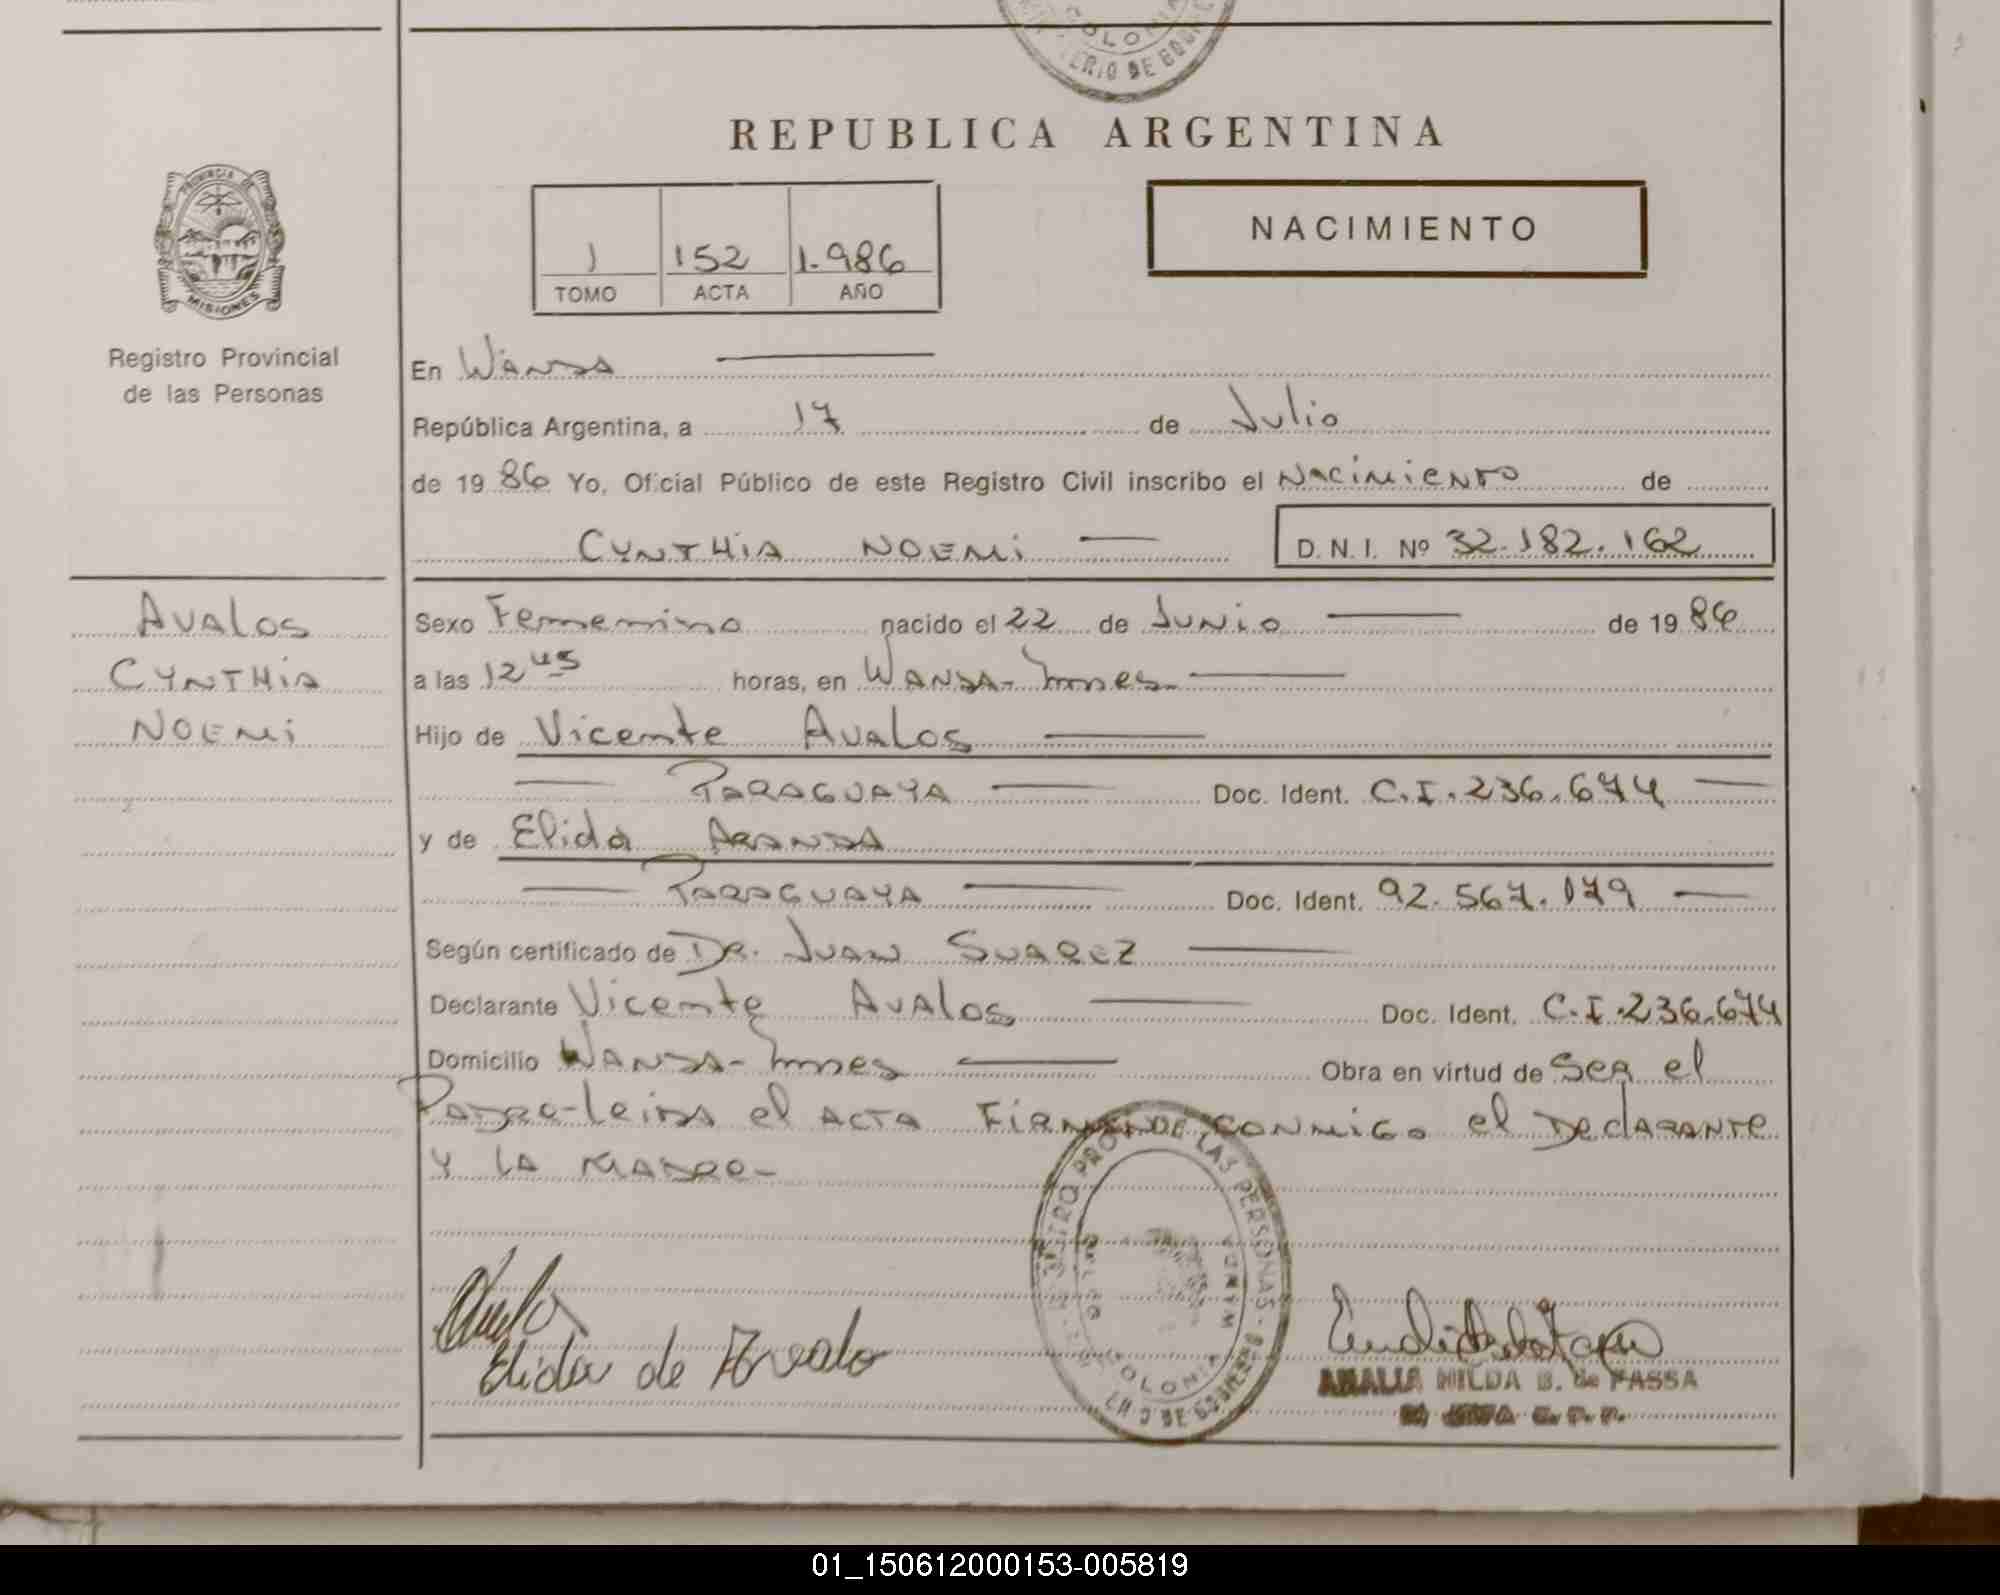 COLONIA
MINISTERIO DE GOBIERNO
REPUBLICA ARGENTINA
PROVINCIA DE
MISIONES
Registro Provincial
de las Personas
1 152 1.986
TOMO ACTA AÑO
NACIMIENTO
En Wanda
República Argentina, a 17 de Julio
de 1986 Yo, Oficial Público de este Registro Civil inscribo el Nacimiento de
CYNTHiA NOEMi D. N. I. Nº 32.182.162
AVAlos
CYNTHiA
NOEMi
Sexo Femenino nacido el 22 de Junio de 1986
a las 12 45 horas, en Wanda - Mnes.
Hijo de Vicente Avalos
PARAGUAYA Doc. Ident. C.I. 236.674
y de Elida ARANDA
PARAGUAYA Doc. Ident. 92.567.179
Según certificado de DR. JUAN SUAREZ
Declarante Vicente Avalos Doc. Ident. C.I. 236.674
Domicilio Wanda - Mnes Obra en virtud de Ser el
Padre - leida el ACTA FiRMAN CONMiGO el DeclARANTe
Y LA MADRE -
REGISTRO PROV. DE LAS PERSONAS
COLONIA WANDA
Elida de Avalo
AMALIA HILDA B. de FASSA
01_150612000153-005819